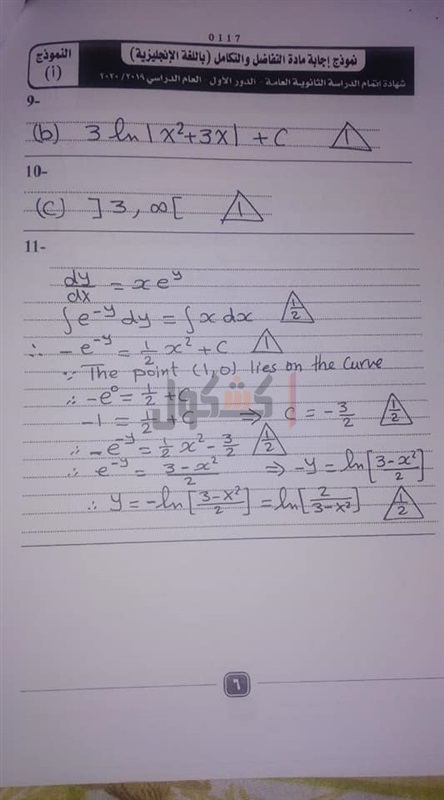 0117
نموذج إجابة مادة التفاضل والتكامل (باللغة الإنجليزية)
شهادة إتمام الدراسة الثانوية العامة - الدور الأول - العام الدراسي ٢٠١٩/٢٠٢٠
النموذج
(أ)
9-
(b) 3 ln |x²+3x| + C 1
10-
(C) ]3, ∞[ 1
11-
dy/dx = x e^y
∫e^-y dy = ∫x dx 1/2
∴ -e^-y = 1/2 x² + C 1
∵ The point (1,0) lies on the curve
∴ -e^0 = 1/2 + C
-1 = 1/2 + C ⇒ C = -3/2 1/2
∴ -e^-y = 1/2 x² - 3/2 1/2
∴ e^-y = (3-x²)/2 ⇒ -y = ln[(3-x²)/2]
∴ y = -ln[(3-x²)/2] = ln[2/(3-x²)] 1/2
كشكول
٦